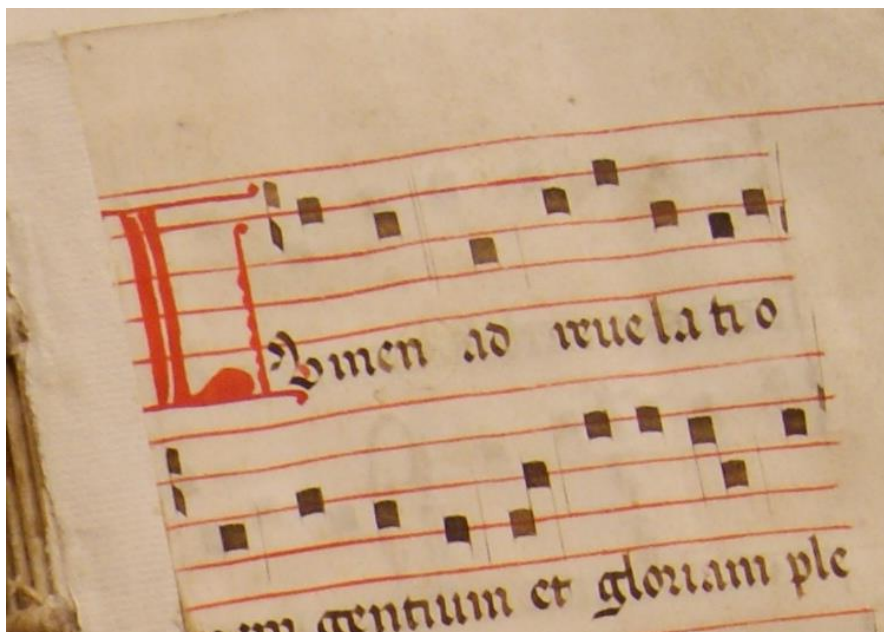 Lumen ad reuelatio
nem gentium et gloriam ple